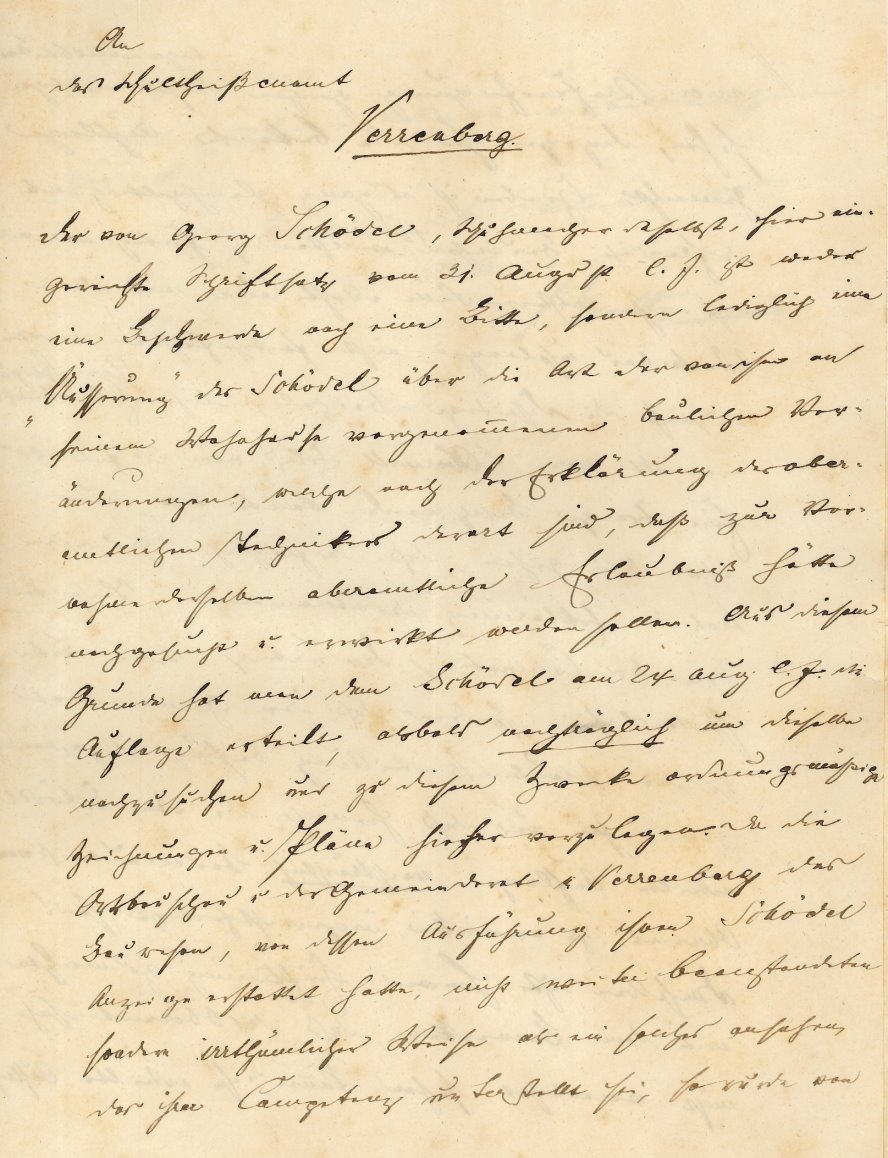 An
das Schultheißenamt
Verrenberg.
Der von Georg Schödel, Schuhmacher daselbst, hier ein-
gereichte Schriftsatz vom 31. August l. J. ist weder
eine Beschwerde noch eine Bitte, sondern lediglich eine
"Äusserung" des Schödel über die Art der von ihm an
seinem Wohnhause vorgenommenen baulichen Ver-
änderungen, welche nach der Erklärung des ober-
amtlichen Technikers derart sind, daß zur Vor-
nahme derselben oberamtliche Erlaubniß hätte
nachgesucht u. erwirkt werden sollen. Aus diesem
Grunde hat man dem Schödel am 24 Aug. l. J. die
Auflage erteilt, alsbald nachträglich um dieselbe
nachzusuchen und zu diesem Zwecke ordnungsmäßige
Zeichnungen u. Pläne hieher vorzulegen. Da die
Ortsbauschau u der Gemeinderat Verrenberg das
Bauwesen, von dessen Ausführung ihnen Schödel
Anzeige erstattet hatte, nicht weiter beanstandeten
sondern irrthümlicher Weise als ein solches ansahen,
das ihrer Competenz unterstellt sei, so wurde von